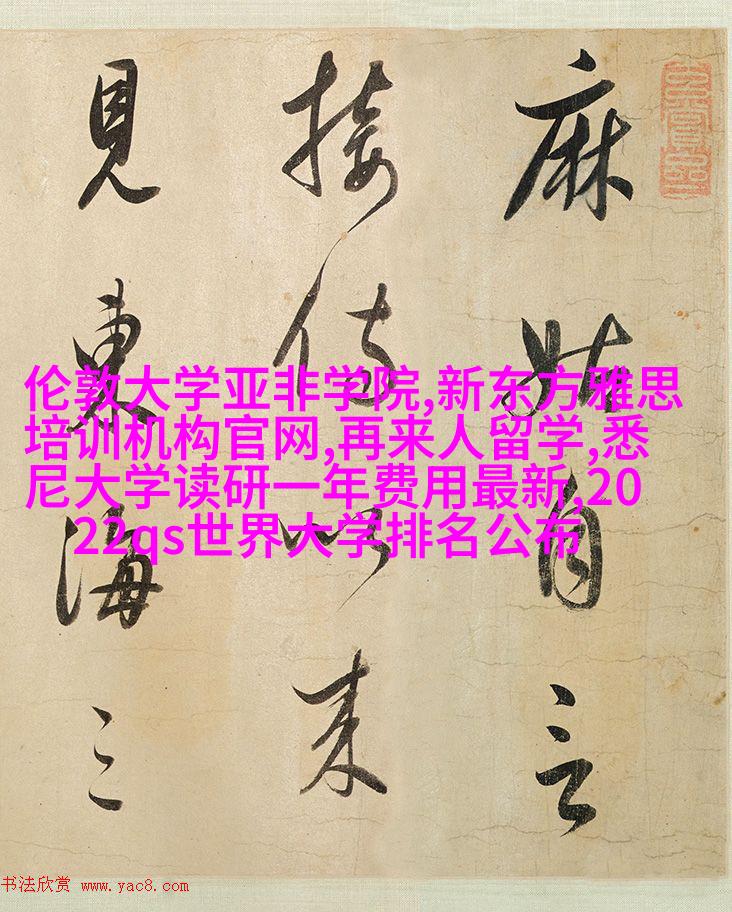 麻姑自言
接侍以来
見東海三
伦敦大学亚非学院,新东方雅思
培训机构官网,再来人留学,悉
尼大学读研一年费用最新,20
22qs世界大学排名公布
书法欣赏 www.yac8.com